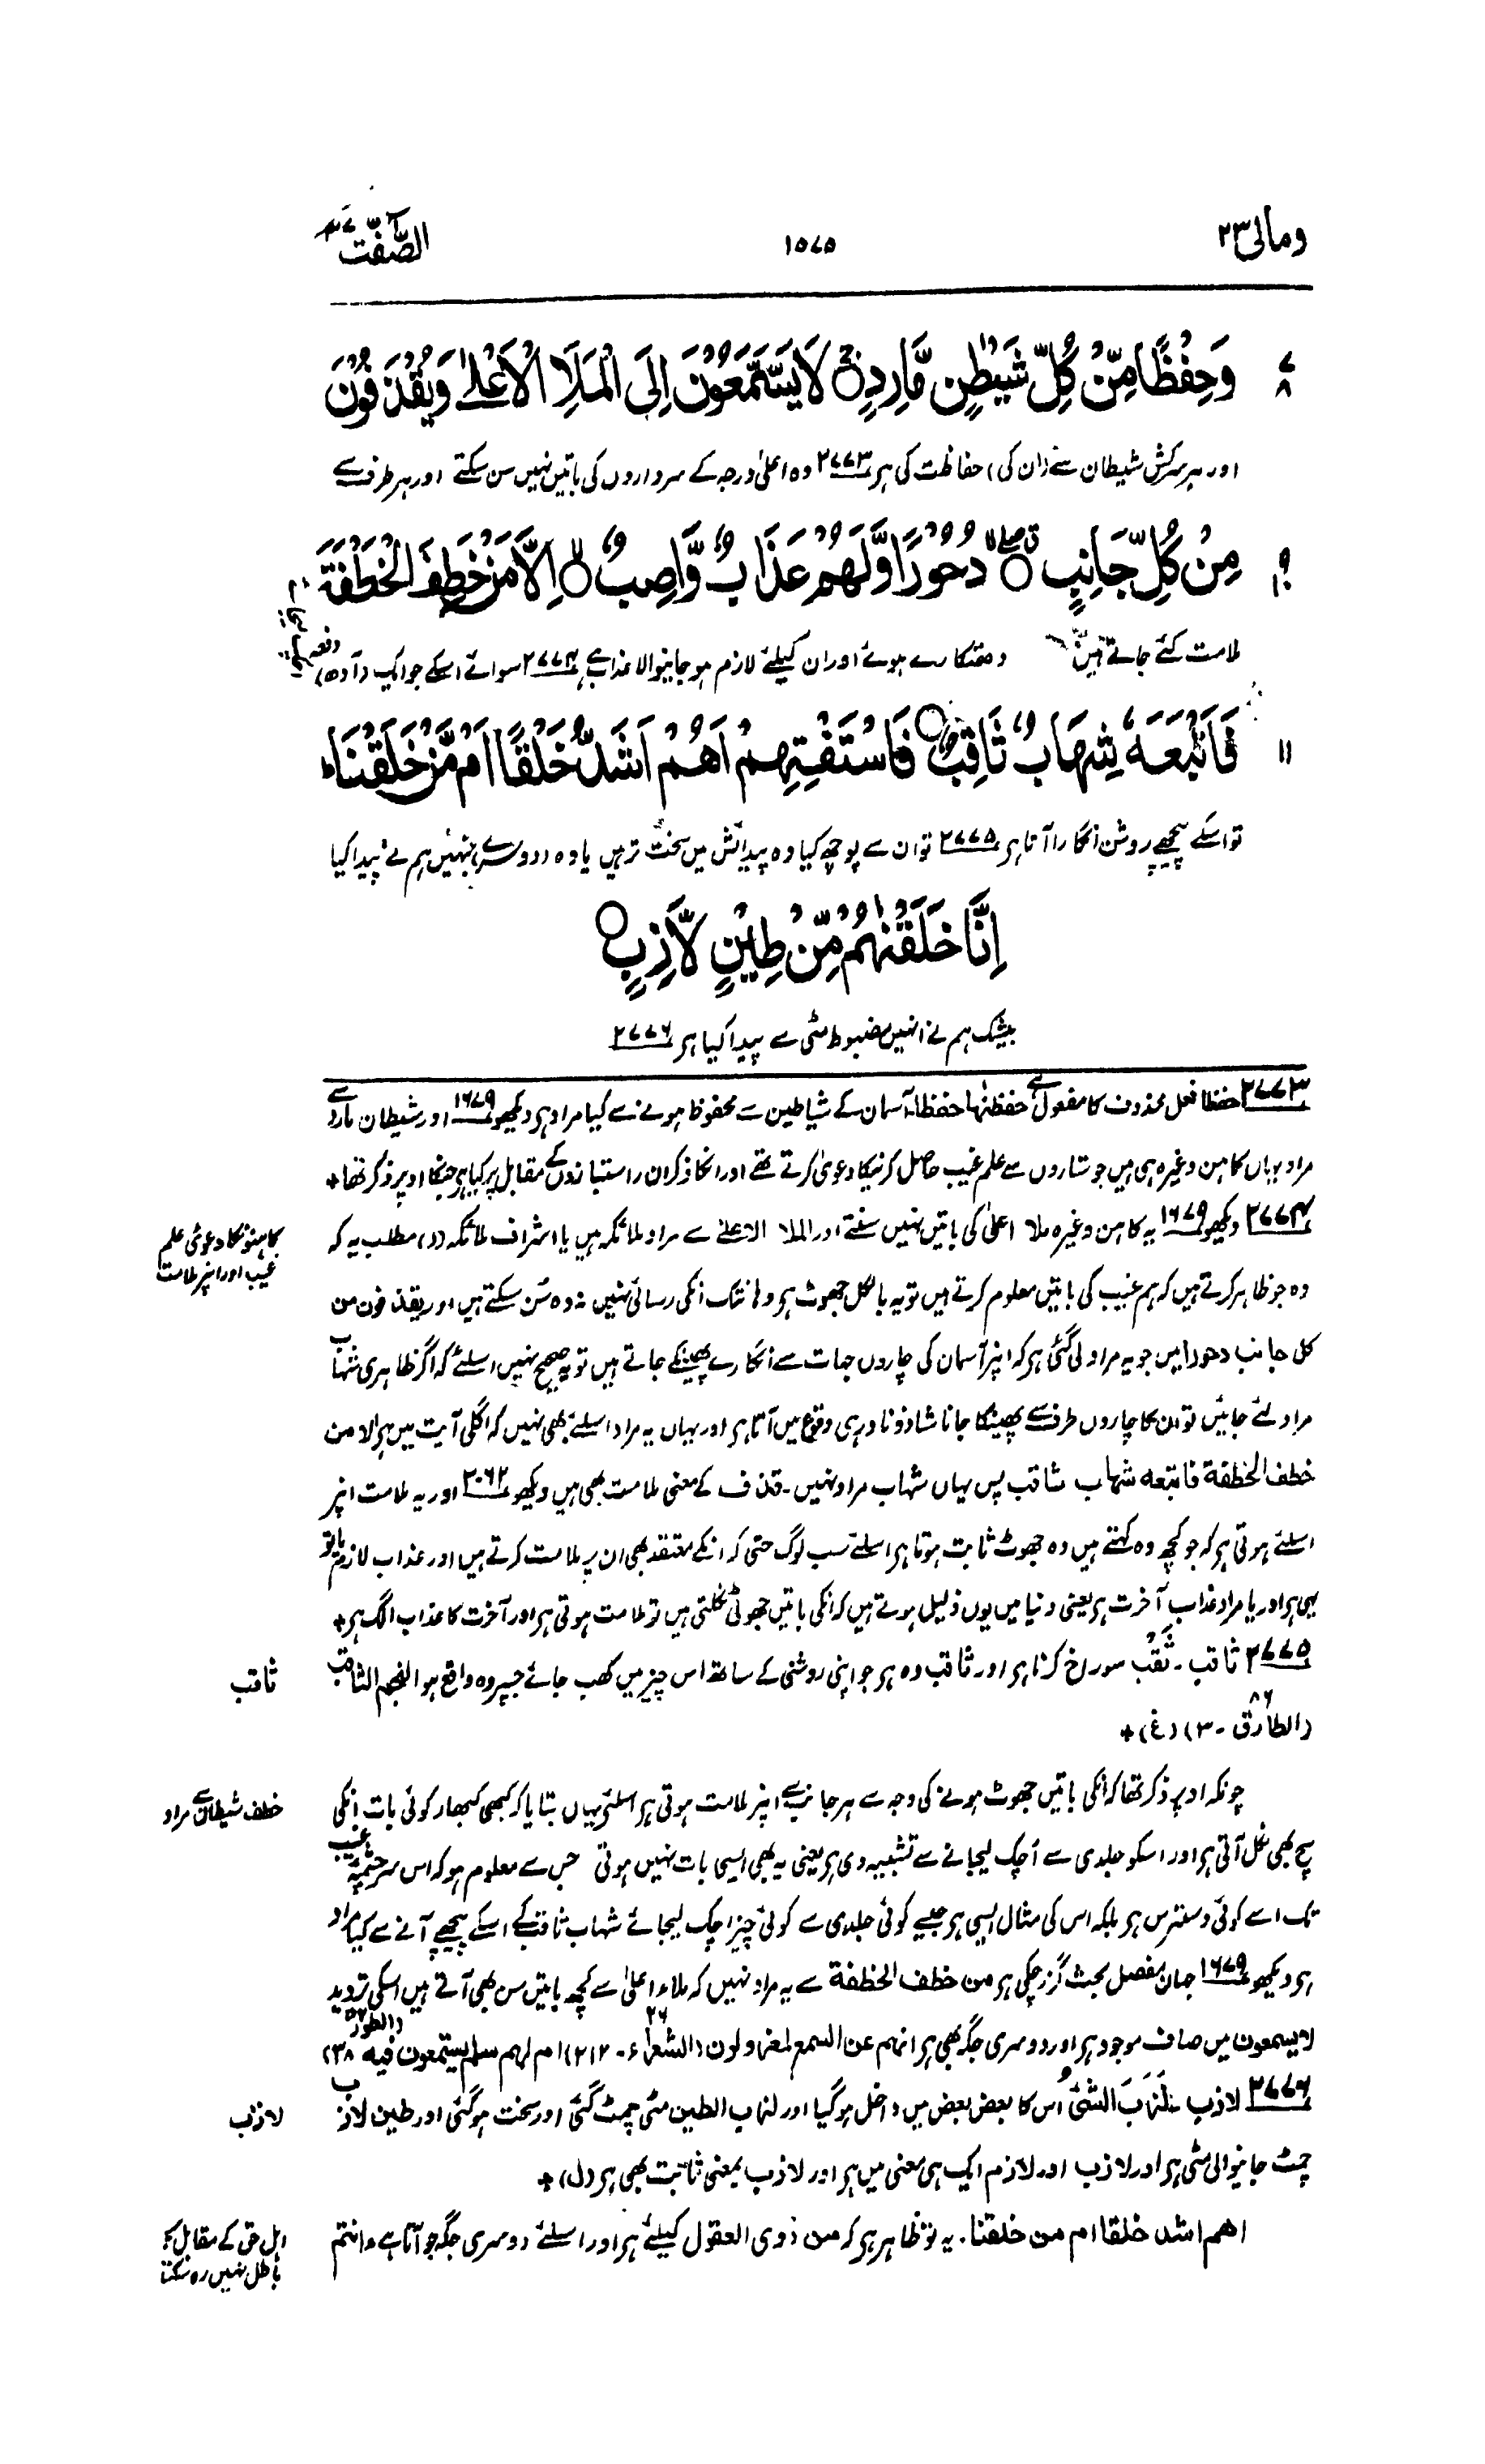 ومالی ۲۳
۱۵۷۵
الصّٰفّٰت ۳۷
وَحِفْظًا مِّنْ كُلِّ شَيْطٰنٍ مَّارِدٍ ۚ لَا يَسَّمَّعُوْنَ اِلَى الْمَلَاِ الْاَعْلٰى وَيُقْذَفُوْنَ
۷
۸
اور ہر سرکش شیطان سے (ان کی) حفاظت کی ہر ۲۷۷۳ وہ اعلیٰ درجہ کے سرداروں کی باتیں نہیں سن سکتے اور ہر طرف سے
مِنْ كُلِّ جَانِبٍ ۖ دُحُوْرًا وَّلَهُمْ عَذَابٌ وَّاصِبٌ ۙ اِلَّا مَنْ خَطِفَ الْخَطْفَةَ
۹
۱۰
ملامت کئے جاتے ہیں دھتکارے ہوئے اور ان کیلئے لازم ہو جانیوالا عذاب ہے ۲۷۷۴ سوائے اسکے جو ایک (آدھ) دفعہ
فَاَتْبَعَهٗ شِهَابٌ ثَاقِبٌ فَاسْتَفْتِهِمْ اَهُمْ اَشَدُّ خَلْقًا اَمْ مَّنْ خَلَقْنَا ؕ
۱۱
تو اسکے پیچھے روشن انگارا آتا ہر ۲۷۷۵ تو ان سے پوچھ کیا وہ پیدائش میں سخت تر ہیں یا وہ (دوسرے) جنہیں ہم نے پیدا کیا
اِنَّا خَلَقْنٰهُمْ مِّنْ طِيْنٍ لَّازِبٍ
بیشک ہم نے انہیں مضبوط مٹی سے پیدا کیا ہر ۲۷۷۶
۲۷۷۳ حفظا فعل محذوف کا مفعول ہے حفظنٰها حفظا۔ آسمان کے شیاطین سے محفوظ ہونے سے کیا مراد ہر دیکھو ۱۶۷۹ اور شیطان مارد سے
مراد یہاں کاہن وغیرہ ہی ہیں جو ستاروں سے علم غیب حاصل کرنیکا دعویٰ کرتے تھے اور انکا ذکر ان راستبازوں کے مقابل پر کیا ہر جنکا اوپر ذکر تھا +
۲۷۷۴ دیکھو ۱۶۷۹ یہ کاہن وغیرہ ملا اعلیٰ کی باتیں نہیں سنتے اور الملا الاعلے سے مراد ملائکہ ہیں یا اشراف ملائکہ (ر) مطلب یہ کہ
کاہنونکا دعویٰ علم
غیب اور انپر ملامت
وہ جو ظاہر کرتے ہیں کہ ہم غیب کی باتیں معلوم کرتے ہیں تو یہ بالکل جھوٹ ہر وہانتک انکی رسائی نہیں نہ وہ سُن سکتے ہیں اور یقذفون من
کل جانب دحورا میں جو یہ مراد لی گئی ہر کہ انپر آسمان کی چاروں جہات سے انگارے پھینکے جاتے ہیں تو یہ صحیح نہیں اسلئے کہ اگر ظاہری شہاب
مراد لئے جائیں تو ان کا چاروں طرف سے پھینکا جانا شاذ و نادر ہی وقوع میں آتا ہر اور یہاں یہ مراد اسلئے بھی نہیں کہ اگلی آیت میں ہر الا من
خطف الخطفة فاتبعه شهاب ثاقب پس یہاں شہاب مراد نہیں۔ قذف کے معنی ملامت بھی ہیں دیکھو ۲۰۶۲ اور یہ ملامت انپر
اسلئے ہوتی ہر کہ جو کچھ وہ کہتے ہیں وہ جھوٹ ثابت ہوتا ہر اسلئے سب لوگ حتی کہ انکے معتقد بھی ان پر ملامت کرتے ہیں اور عذاب لازم یا تو
یہی ہر اور یا مراد عذاب آخرت ہر یعنی دنیا میں یوں ذلیل ہوتے ہیں کہ انکی باتیں جھوٹی نکلتی ہیں تو ملامت ہوتی ہر اور آخرت کا عذاب الگ ہر +
۲۷۷۵ ثاقب۔ ثَقْب سوراخ کرنا ہر اور ثاقب وہ ہر جو اپنی روشنی کے ساتھ اس چیز میں کھب جائے جسپر وہ واقع ہو النجم الثاقب
ثاقب
(الطارق ۸۶ ۔ ۳) (غ) +
چونکہ اوپر ذکر تھا کہ انکی باتیں جھوٹ ہونے کی وجہ سے ہر جانب سے انپر ملامت ہوتی ہر اسلئے یہاں بتایا کہ کبھی کبھار کوئی بات انکی
خطف شیطان سے مراد
سچ بھی نکل آتی ہر اور اسکو جلدی سے اُچک لیجانے سے تشبیہ دی ہر یعنی یہ بھی ایسی بات نہیں ہوتی جس سے معلوم ہو کہ اس سرچشمہ غیب
تک اسے کوئی دسترس ہر بلکہ اس کی مثال ایسی ہر جیسے کوئی جلدی سے کوئی چیز اچک لیجائے شہاب ثاقب کے اسکے پیچھے آنے سے کیا مراد
ہر دیکھو ۱۶۷۹ جہاں مفصل بحث گزر چکی ہر من خطف الخطفة سے یہ مراد نہیں کہ ملاء اعلیٰ سے کچھ باتیں سن بھی آتے ہیں اسکی تردید
لا یسمعون میں صاف موجود ہر اور دوسری جگہ بھی ہر انهم عن السمع لمعزولون (الشعراء ۲۶ ۔ ۲۱۲) ام لهم سلم یستمعون فیه (الطور ۳۸)
۲۷۷۶ لازب ۔ لَزَبَ الشَّیْءُ اُس کا بعض بعض میں داخل ہو گیا اور لزب الطین مٹی چمٹ گئی اور سخت ہو گئی اور طین لازب
لازب
چمٹ جانیوالی مٹی ہر اور لازب اور لازم ایک ہی معنی میں ہر اور لازب بمعنی ثابت بھی ہر (ل) +
اهم اشد خلقا ام من خلقنا۔ یہ تو ظاہر ہر کہ من ذوی العقول کیلئے ہر اور اسلئے دوسری جگہ جو آتا ہے ءانتم
اہل حق کے مقابل
باطل نہیں رہ سکتا